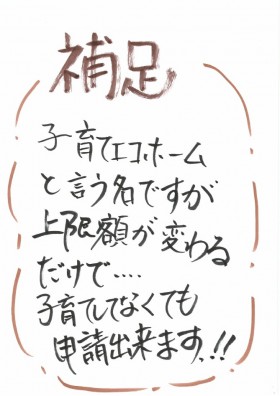 補足
子育てエコホーム
と言う名ですが
上限額が変わる
だけで....
子育てしてなくても
申請出来ます!!